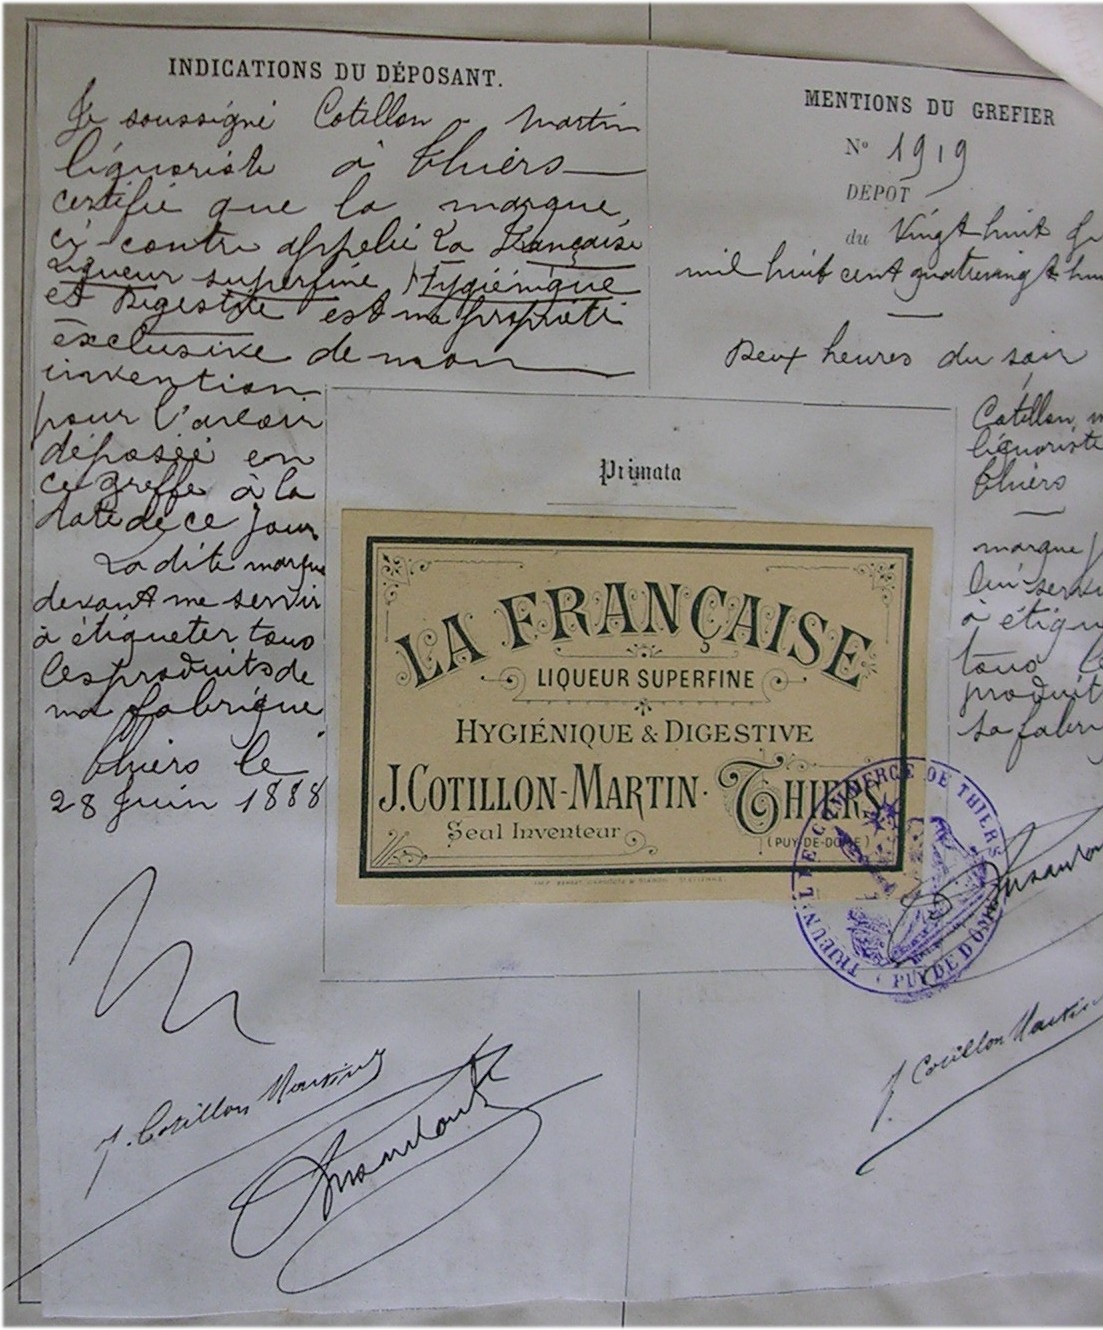 INDICATIONS DU DÉPOSANT.
Je soussigné Cotillon - Martin
liquoriste à Thiers
certifie que la marque,
ci-contre appelée La Française
Liqueur superfine Hygiénique
et Digestive est ma propriété
exclusive de mon
invention
pour l'avoir
déposée en
ce greffe à la
date de ce jour
La dite marque
devant me servir
à étiqueter tous
les produits de
ma fabrique
Thiers le
28 Juin 1888
J. Cotillon Martin
MENTIONS DU GREFIER
No 1919
DEPOT
du Vingt huit
mil huit cent quatrevingt
Deux heures du soir
Cotillon
liquoriste
Thiers
marque
lui
à
tous
sa
Primata
LA FRANÇAISE
LIQUEUR SUPERFINE
HYGIÉNIQUE & DIGESTIVE
J. COTILLON-MARTIN · THIERS
Seul Inventeur
(PUY-DE-DOME)
TRIBUNAL DE COMMERCE DE THIERS
PUY DE DOME
J. Cotillon Martin